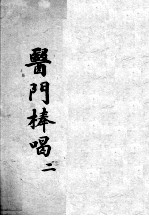 醫門棒喝二